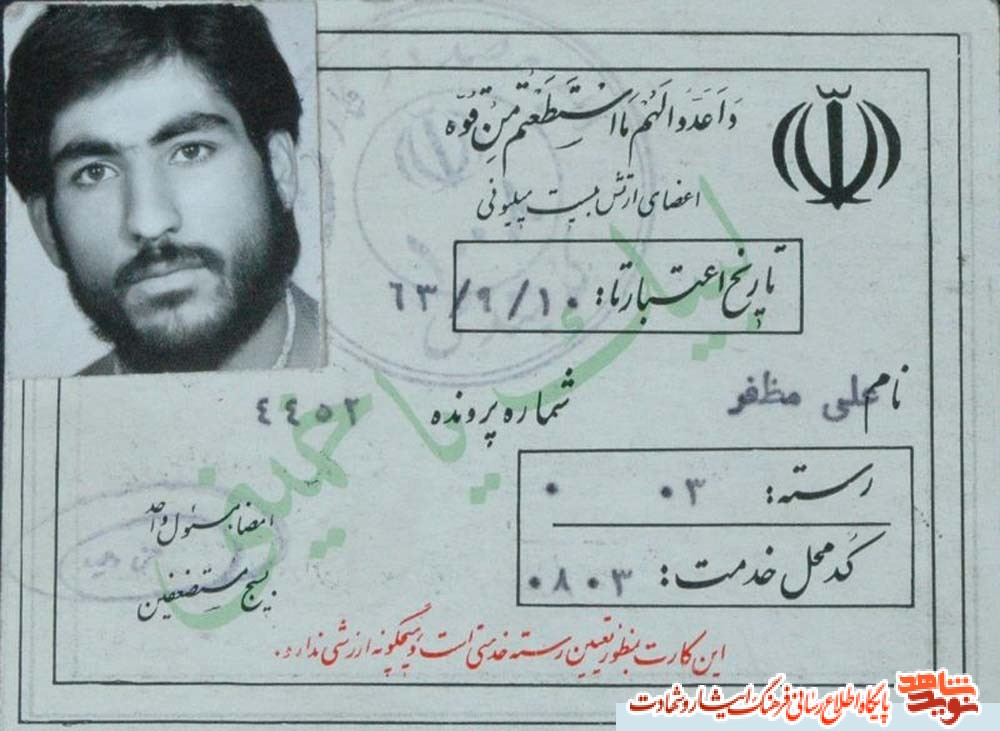 وَأَعِدُّوا لَهُم مَا اسْتَطَعْتُم مِن قُوَّة
اعضای ارتش بیست میلیونی
تاریخ اعتبار تا: ٦٣/٩/١٠
نام علی مظفر
شماره پرونده ٤٤٥٢
رسته: ٠٣ ٠
کد محل خدمت: ٠٨٠٣
لبیک یا خمینی
امضا مسئول واحد
بسیج مستضعفین
این کارت بمنظور تعیین رسته خدمتی است و هیچگونه ارزشی ندارد.
نوید شاهد
پایگاه اطلاع رسانی فرهنگ ایثار و شهادت